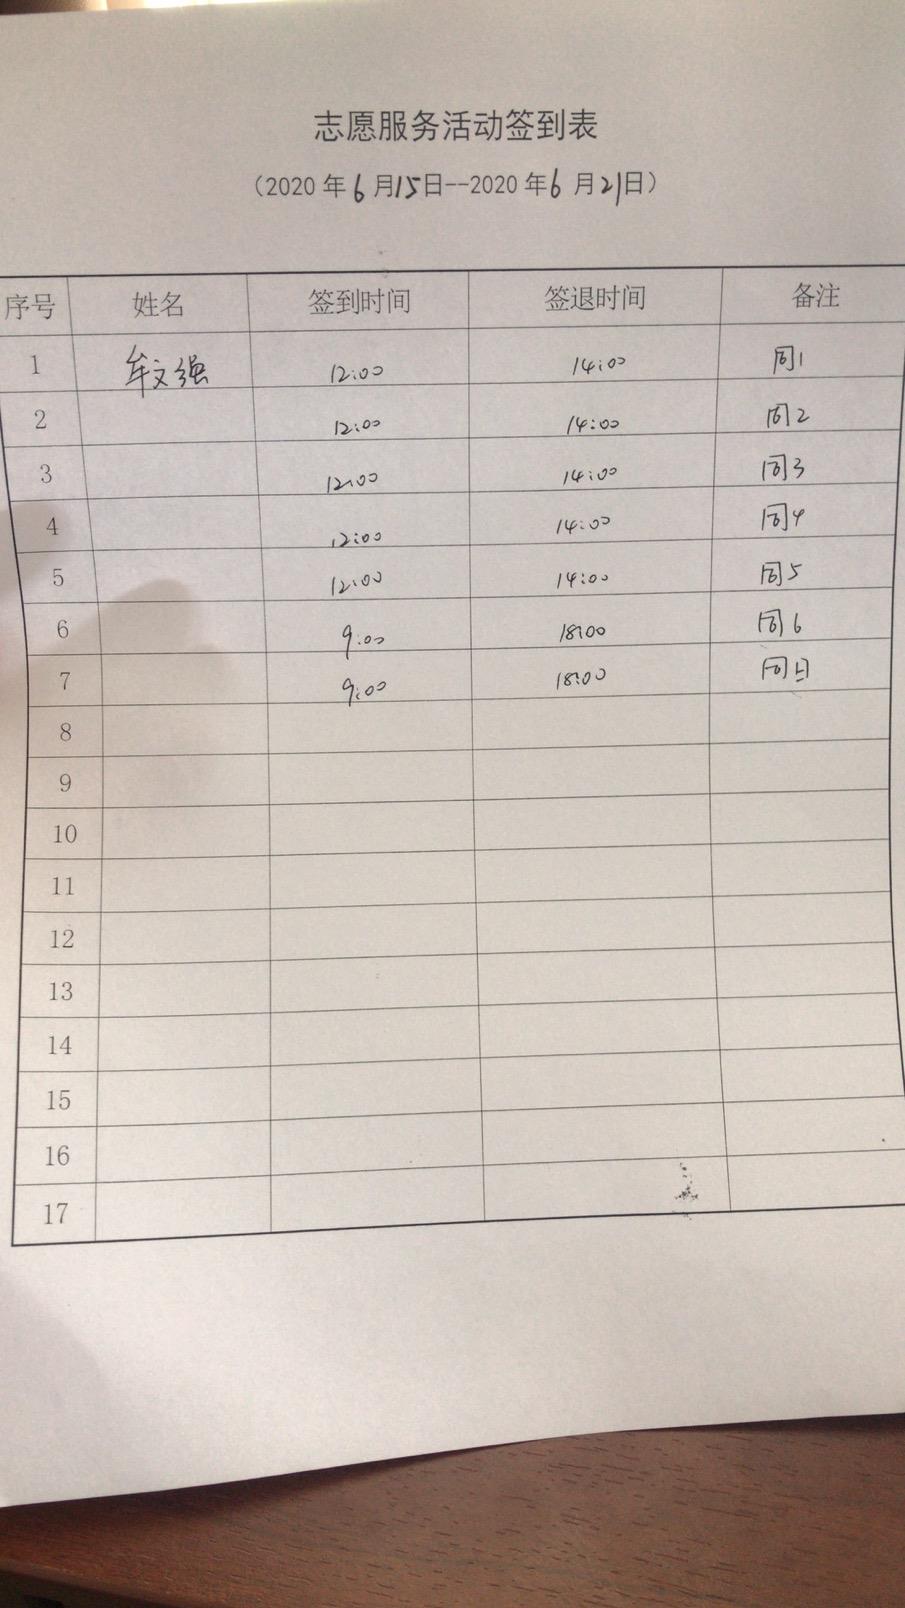 志愿服务活动签到表
（2020 年 6 月 15 日--2020 年 6 月 21 日）
序号 姓名 签到时间 签退时间 备注
1 牟文强 12:00 14:00 周1
2 12:00 14:00 周2
3 12:00 14:00 周3
4 12:00 14:00 周4
5 12:00 14:00 周5
6 9:00 18:00 周6
7 9:00 18:00 周日
8
9
10
11
12
13
14
15
16
17